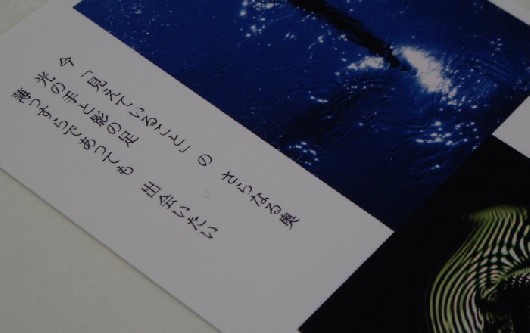 今「見えていること」の さらなる奥
光の手と影の足
薄っすらであっても 出会いたい